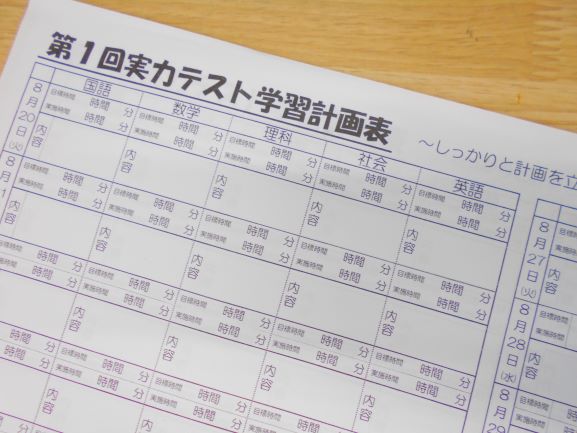 第1回実力テスト学習計画表
～しっかりと計画を立
国語 数学 理科 社会 英語
8月20日(火)
目標時間 時間 分 目標時間 時間 分 目標時間 時間 分 目標時間 時間 分 目標時間 時間 分
実施時間 時間 分 実施時間 時間 分 実施時間 時間 分 実施時間 時間 分 実施時間 時間 分
内容 内容 内容 内容 内容
8月
目標時間 時間 分 目標時間 時間 分 目標時間 時間 分 目標時間 時間 分 目標時間 時間 分
実施時間 時間 分 実施時間 時間 分 実施時間 時間 分 実施時間 時間 分 実施時間 時間 分
内容 内容 内容 内容
時間 分 目標時間 時間 分 目標時間 時間 分 目標時間 時間 分 目標時間 時間 分
時間 分 実施時間 時間 分 実施時間 時間 分 実施時間 時間 分 実施時間 時間 分
内容 内容 内容 内容
8月27日(火)
目標時間
実施時間
内容
8月28日(水)
目標時間
実施時間
内容
8月29